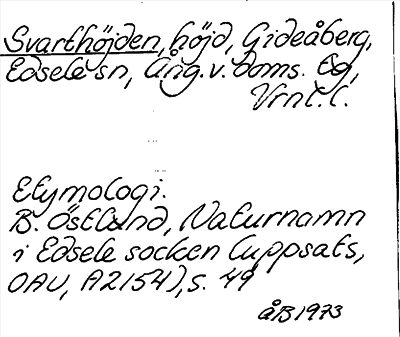 Svarthöjden, höjd, Gideåberg,
Edsele sn, Ång. v. doms. tg,
Vrnl. l.
Etymologi.
B. Östlund, Naturnamn
i Edsele socken (uppsats,
OAU, A2154), s. 49
åB 1973